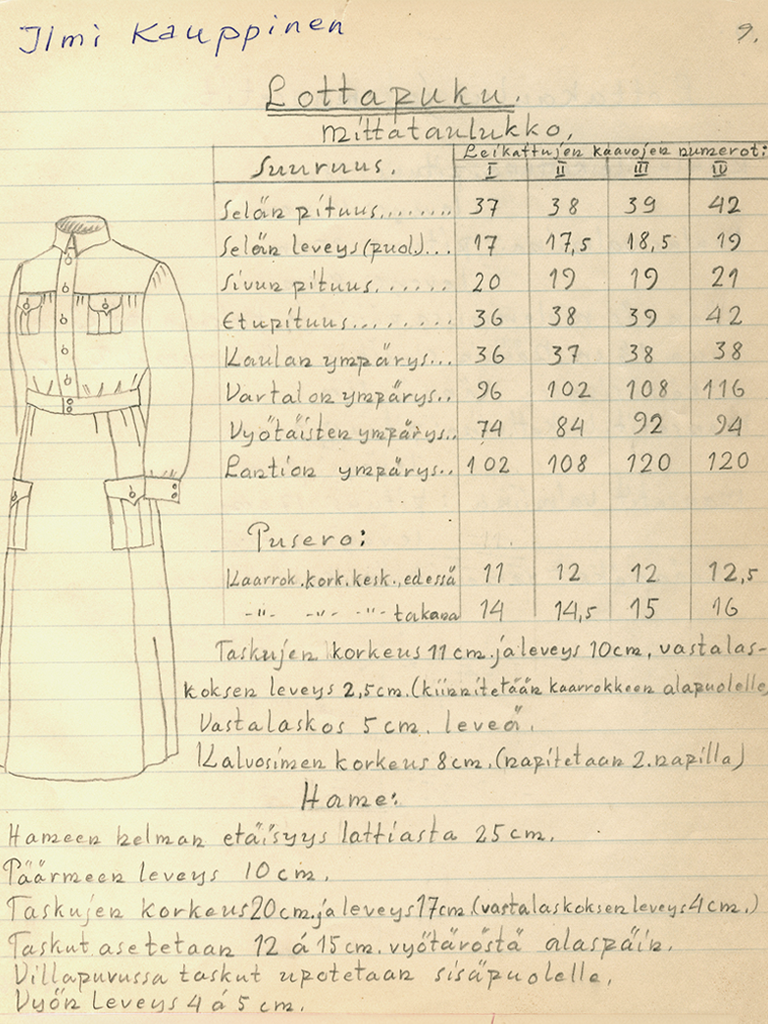 Ilmi Kauppinen
9.
Lottapuku.
mittataulukko.
Suuruus. Leikattujen kaavojen numerot:
I II III IV
Selän pituus........ 37 38 39 42
Selän leveys (puol)... 17 17,5 18,5 19
Sivun pituus...... 20 19 19 21
Etupituus........ 36 38 39 42
Kaulan ympärys... 36 37 38 38
Vartalon ympärys.. 96 102 108 116
Vyötäisten ympärys.. 74 84 92 94
Lantion ympärys.. 102 108 120 120
Pusero:
Kaarrok. kork. kesk., edessä 11 12 12 12,5
-"- -"- -"- takana 14 14,5 15 16
Taskujen korkeus 11 cm. ja leveys 10 cm, vastalas-
koksen leveys 2,5 cm. (kiinnitetään kaarrokkeen alapuolelle,
Vastalaskos 5 cm. leveä.
Kalvosimen korkeus 8 cm. (napitetaan 2. napilla)
Hame:
Hameen helman etäisyys lattiasta 25 cm.
Päärmeen leveys 10 cm.
Taskujen korkeus 20 cm. ja leveys 17 cm. (vastalaskoksen leveys 4 cm.)
Taskut asetetaan 12 á 15 cm. vyötäröstä alaspäin.
Villapuvussa taskut upotetaan sisäpuolelle.
Vyön leveys 4 á 5 cm.